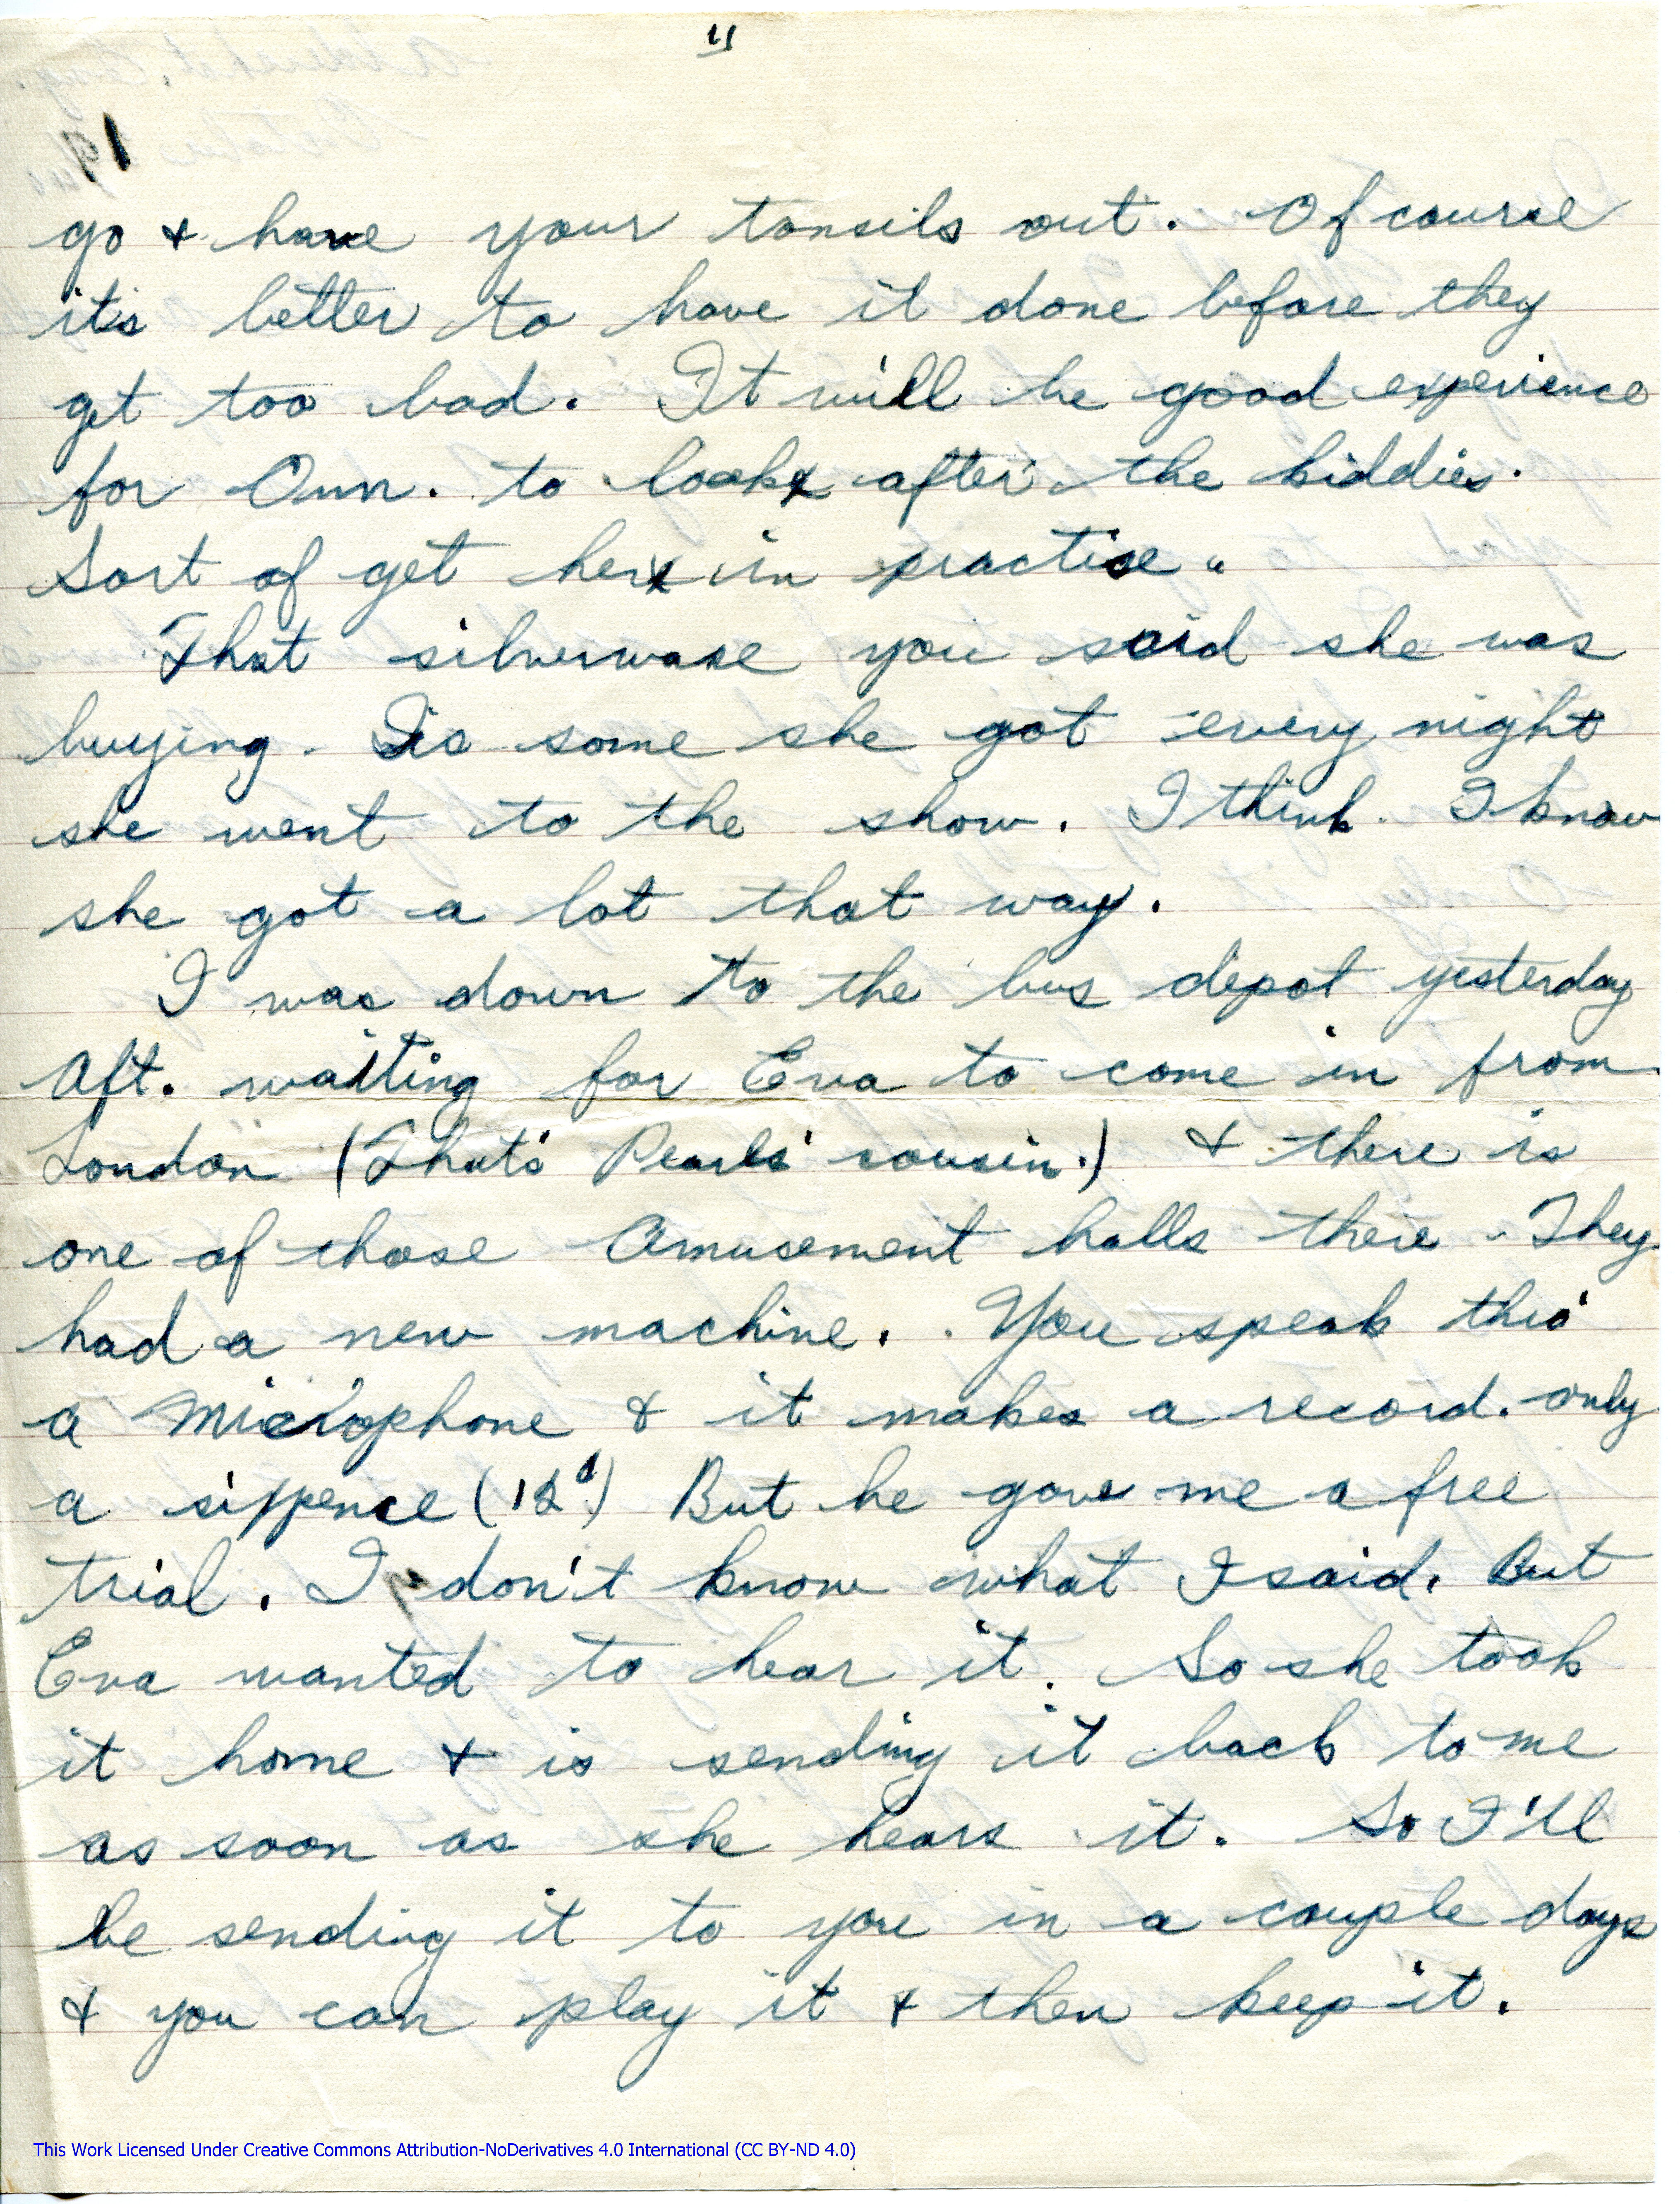 11
go & have your tonsils out. Of course
it's better to have it done before they
get too bad. It will be good experience
for Ann. to look after the kiddies.
Sort of get her in practise.
That silverware you said she was
buying. Is some she got every night
she went to the show. I think. I know
she got a lot that way.
I was down to the bus depot yesterday
Aft. waiting for Eva to come in from
London (That's Pearls' cousin.) & there is
one of those Amusement halls there. They
had a new machine. You speak thro'
a Microphone & it makes a record. only
a sixpence (12¢) But he gave me a free
trial. I don't know what I said. But
Eva wanted to hear it. So she took
it home & is sending it back to me
as soon as she hears it. So I'll
be sending it to you in a couple days
& you can play it & then keep it.
This Work Licensed Under Creative Commons Attribution-NoDerivatives 4.0 International (CC BY-ND 4.0)